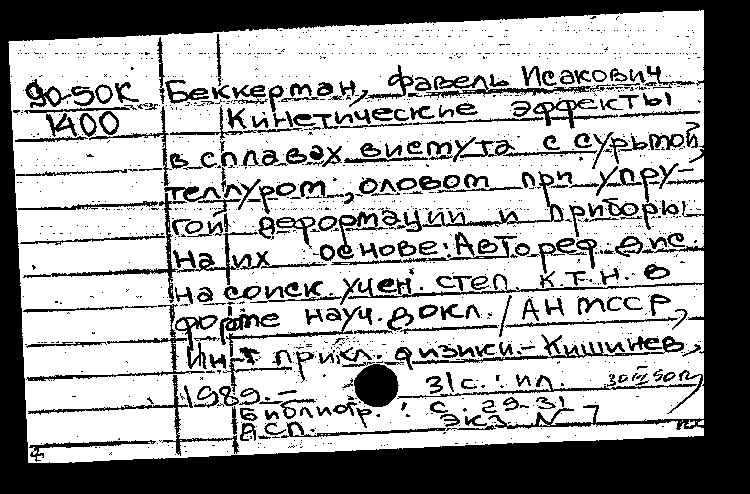 90-50К Беккерман, Фавель Исакович
1400 Кинетические эффекты
в сплавах висмута с сурьмой,
теллуром, оловом при упру-
гой деформации и приборы
на их основе: Автореф. дис.
на соиск. учен. степ к.т.н. в
форме науч. докл. / АН МССР,
Ин-т прикл. физики. - Кишинев,
1989. - 31 с. : ил.
Библиогр. : с. 29-31
ДСП. экз. N 7